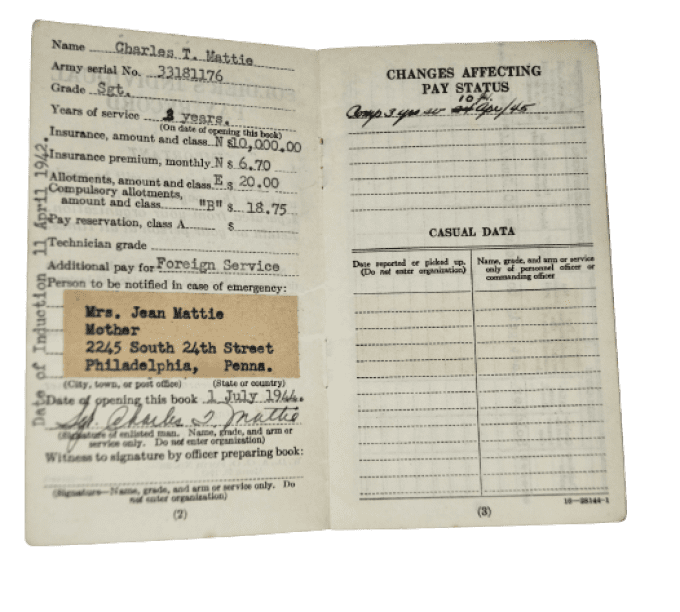 Name Charles T. Mattie
Army serial No. 33181176
Grade Sgt.
Years of service 2 years.
(On date of opening this book)
Insurance, amount and class N $10,000.00
Insurance premium, monthly N $ 6.70
Allotments, amount and class E $ 20.00
Compulsory allotments,
amount and class "B" $ 18.75
Pay reservation, class A $
Technician grade
Additional pay for Foreign Service
Person to be notified in case of emergency:
Mrs. Jean Mattie
Mother
2245 South 24th Street
Philadelphia, Penna.
(City, town, or post office) (State or country)
Date of opening this book 1 July 1944.
Sgt. Charles T. Mattie
(Signature of enlisted man. Name, grade, and arm or
service only. Do not enter organization)
Witness to signature by officer preparing book:
(Signature—Name, grade, and arm or service only. Do
not enter organization)
(2)
Date of Induction 11 April 1942.
CHANGES AFFECTING
PAY STATUS
10
Comp 3 yrs sv Apr/45
CASUAL DATA
Date reported or picked up.
(Do not enter organization)
Name, grade, and arm or service
only of personnel officer or
commanding officer
16—28144-1
(3)